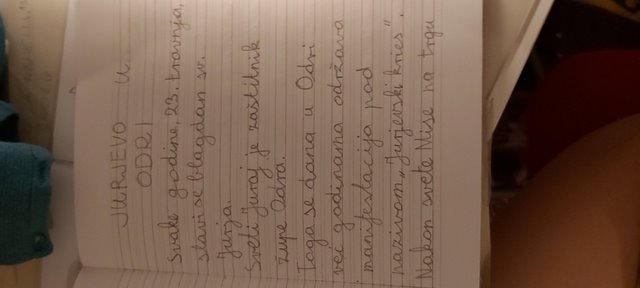 JURJEVO U
ODRI
Svake godine, 23. travnja,
slavi se blagdan sv.
Jurja.
Sveti Juraj je zaštitnik
župe Odra.
Toga se dana u Odri
već godinama održava
manifestacija pod
nazivom „Jurjevski kries".
Nakon svete Mise na trgu